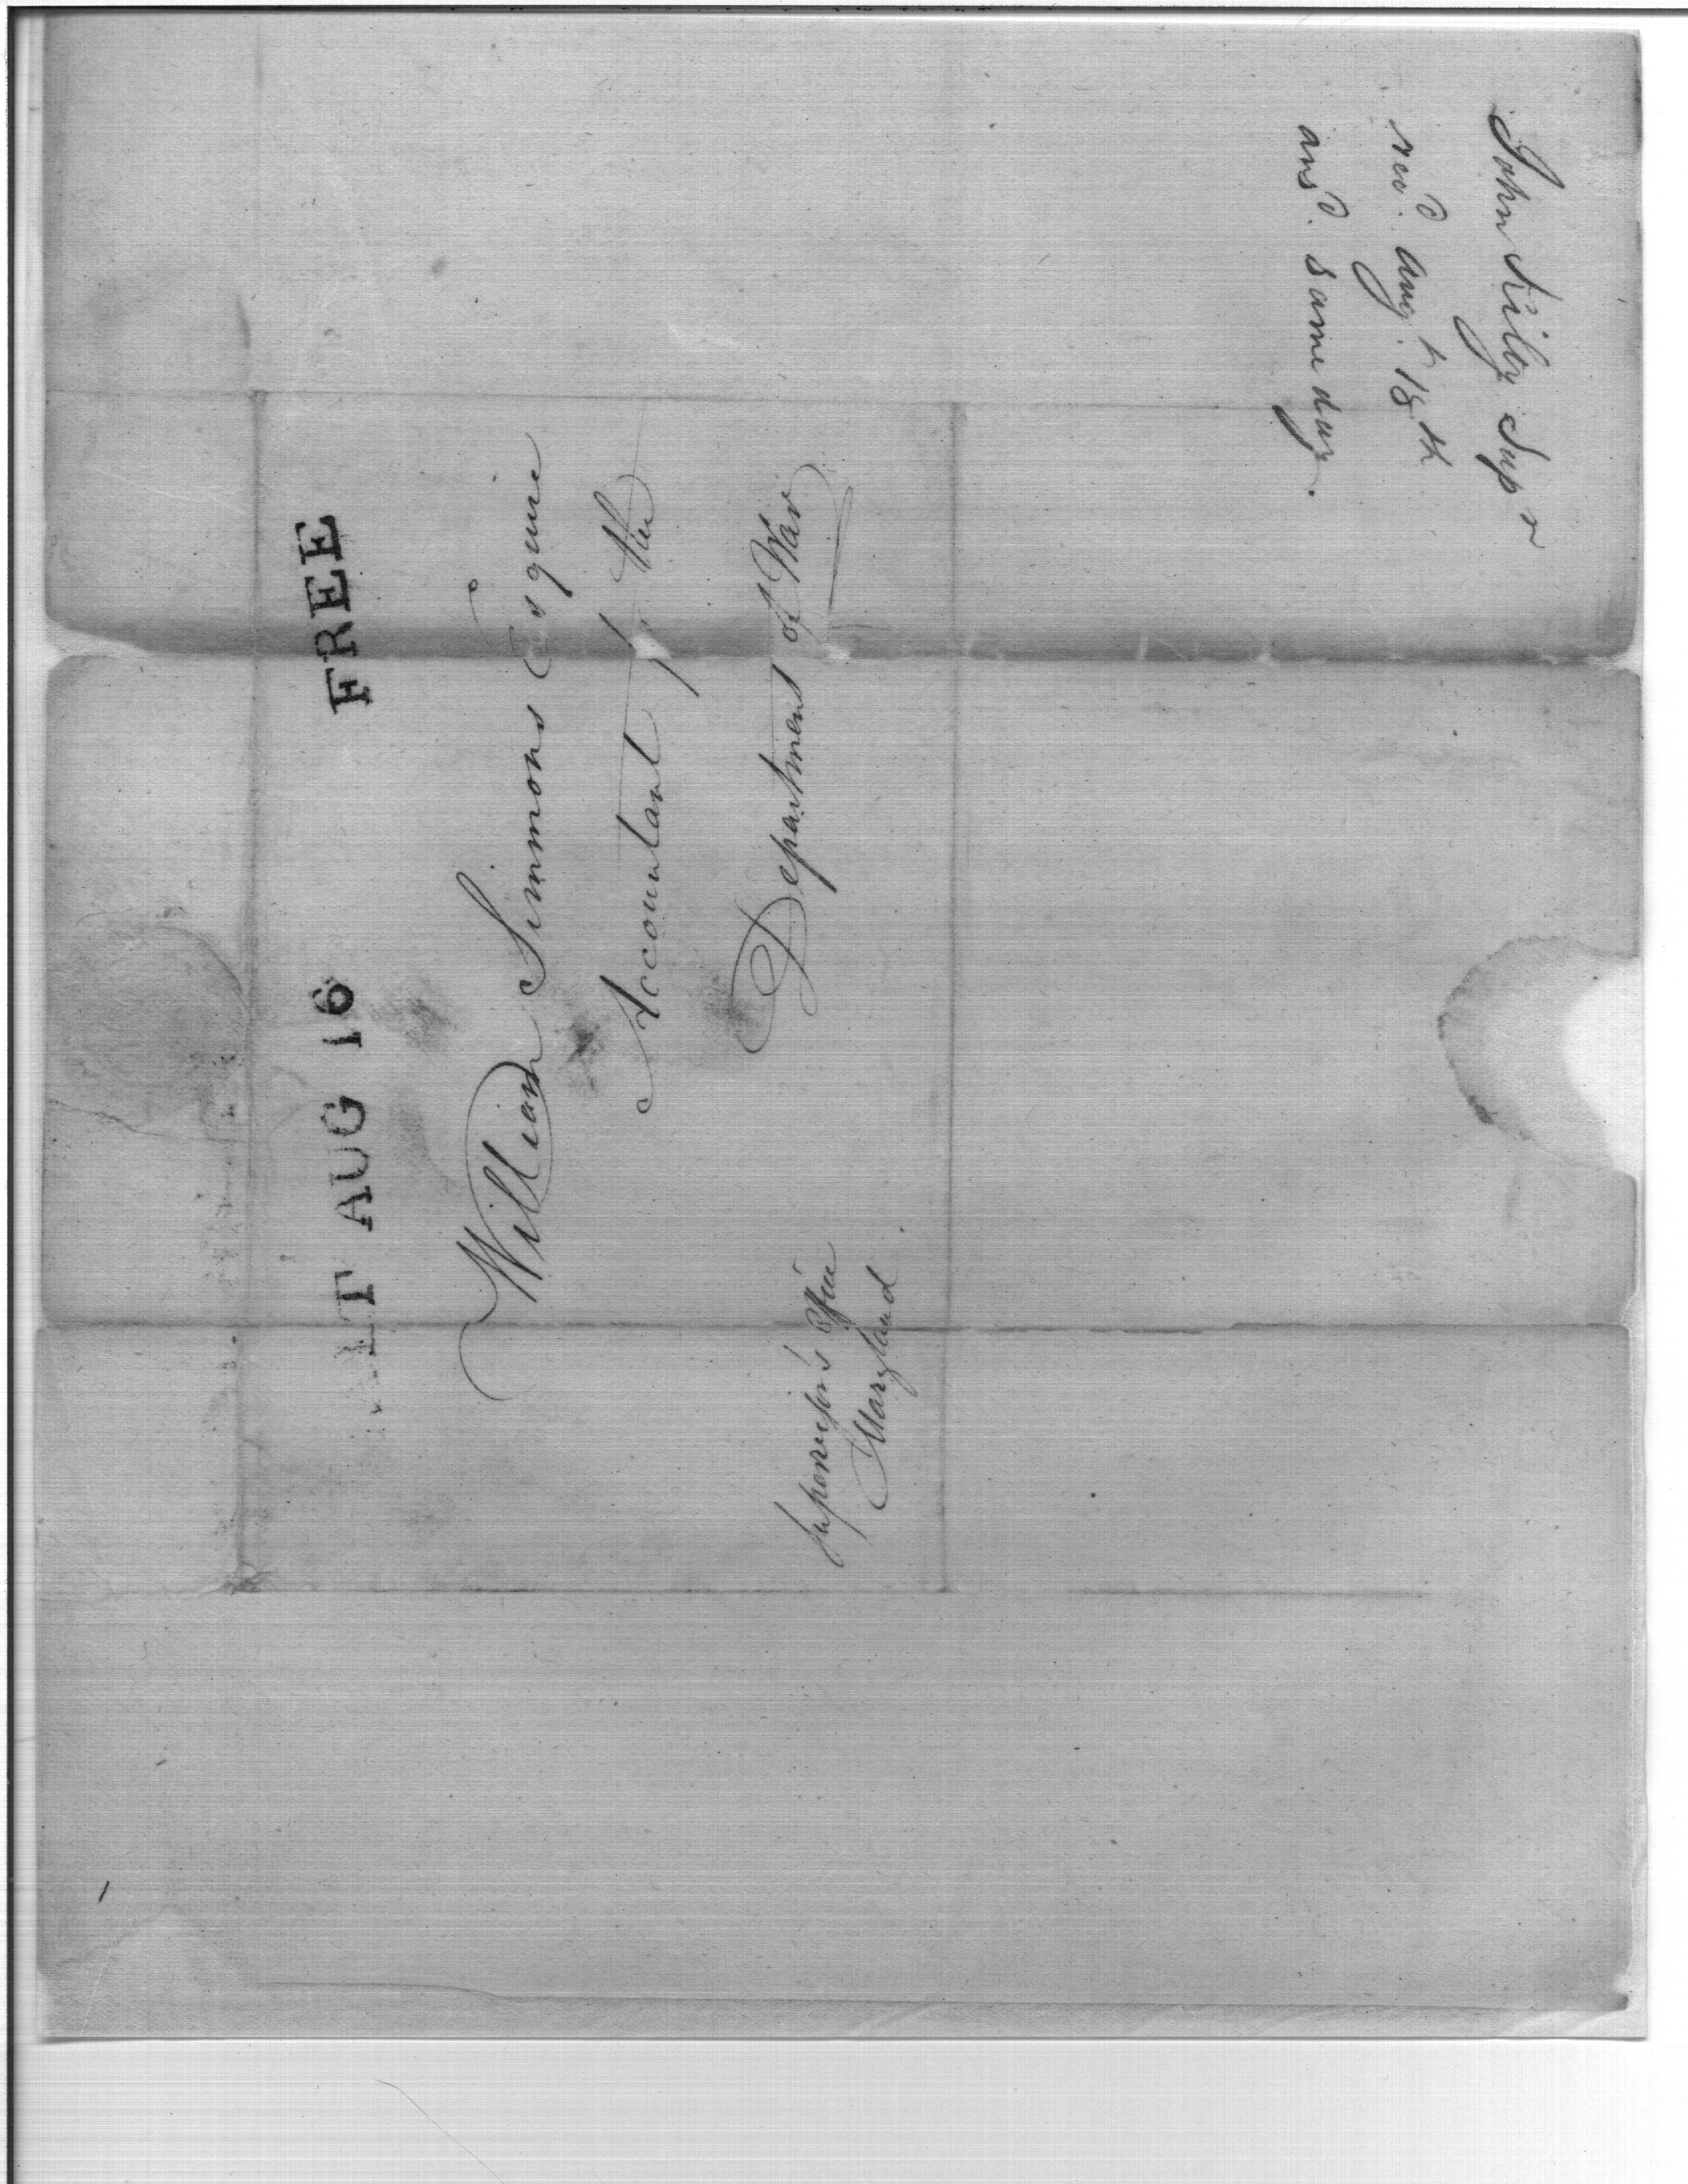 John Kilty Supr
recd. Augt. 18th
ansd. same day.
LT AUG 16 FREE
William Simmons Esquire
Accountant of the
Department of War
Supervisor's Office
Maryland